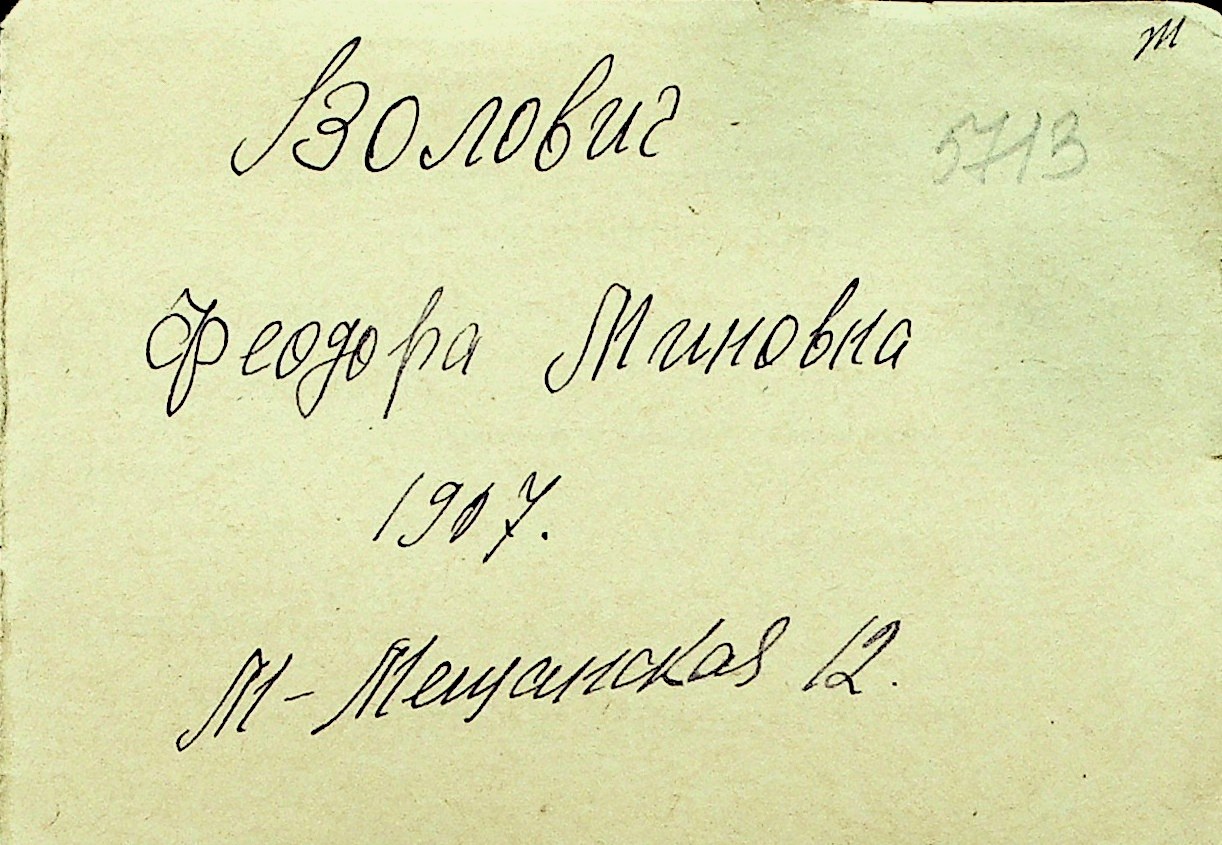 т
Волович
5713
Феодора Миновна
1907.
М-Мещанская 12.